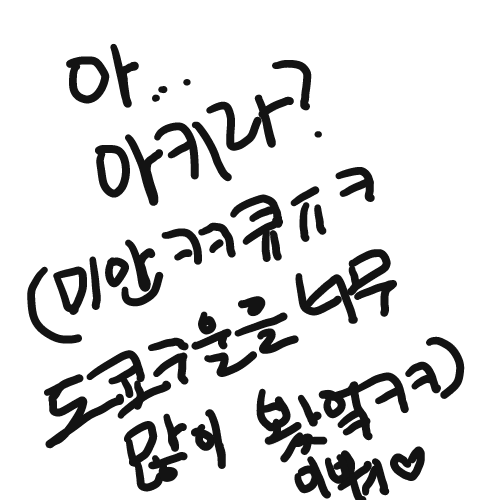 아...
아키라?
(미안 ㅋㅋ큐ㅠㅋ
도쿄구울를 너무
많이 봤엌ㅋㅋ)
이뻐♡